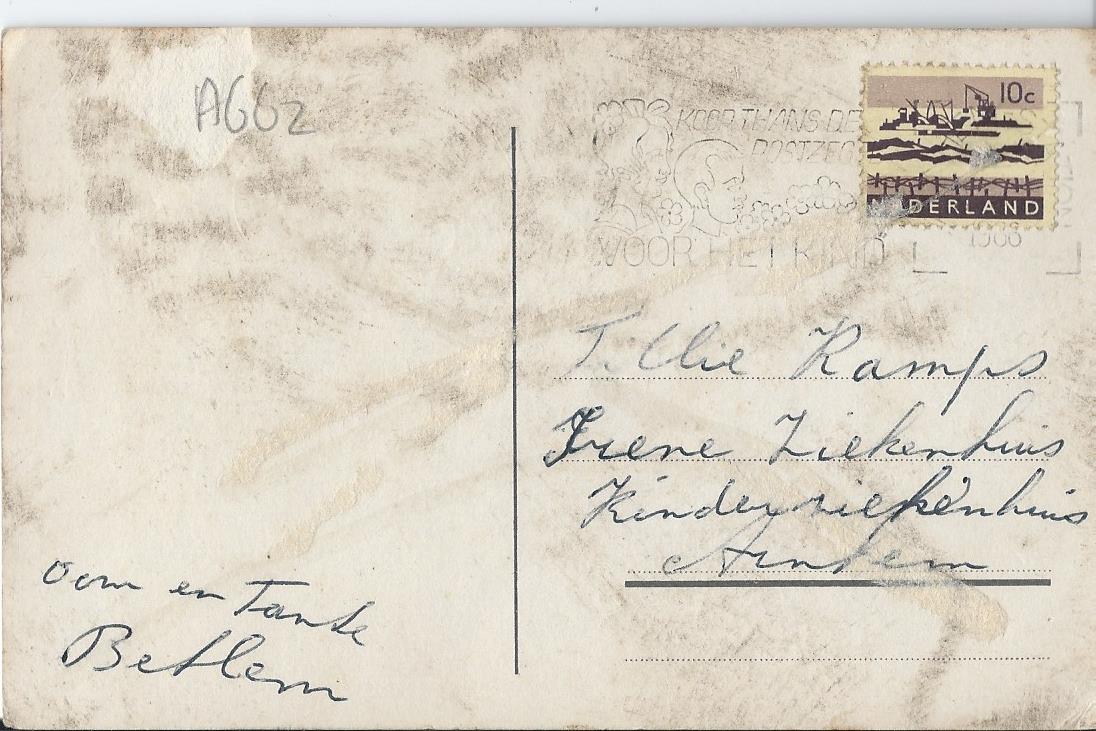 A662
KOOP THANS DE
POSTZEG
VOOR HET KIND
10c
NEDERLAND
1966
Tillie Kamps
Irene Ziekenhuis
Kinderziekenhuis
Arnhem
Oom en Tante
Betlem